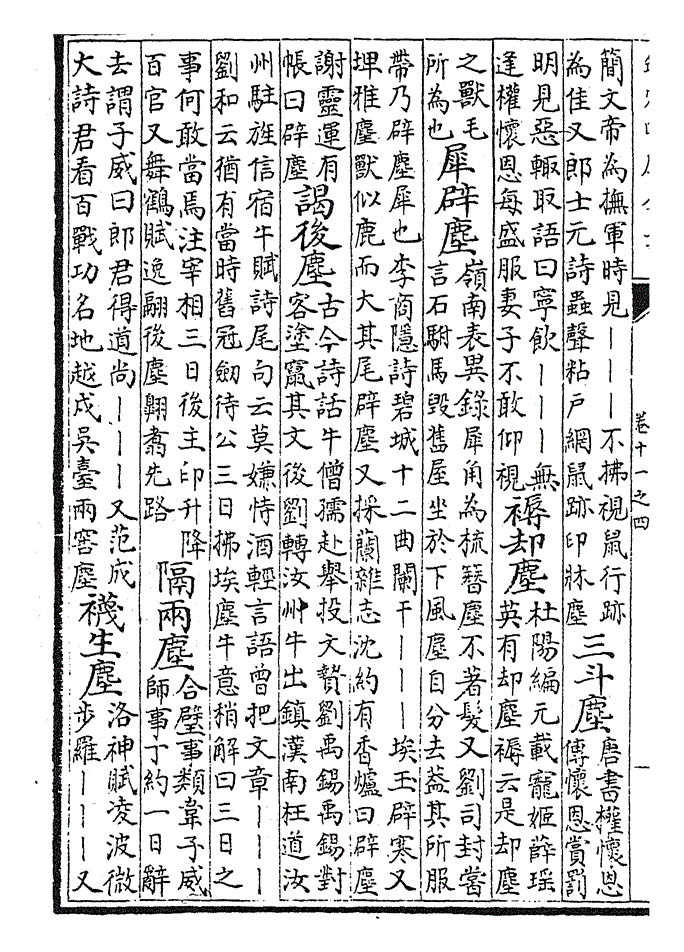 卷十一之四
簡文帝為撫軍時見｜｜｜不拂視鼠行跡
為佳又郎士元詩蟲聲粘戶網鼠跡印牀塵
三斗塵
唐書權懷恩
傳懷恩賞罰
明見惡輙取語曰寧飲｜｜｜無
逢權懷恩每盛服妻子不敢仰視
褥却塵
杜陽編元載寵姬薛瑶
英有却塵褥云是却塵
之獸毛
所為也
犀辟塵
嶺南表異錄犀角為梳簪塵不著髮又劉司封當
言石駙馬毀舊屋坐於下風塵自分去葢其所服
帶乃辟塵犀也李商隱詩碧城十二曲闌干｜｜｜埃玉辟寒又
埤雅麈獸似鹿而大其尾辟塵又採蘭雜志沈約有香爐曰辟塵
謝靈運有
帳曰辟塵
謁後塵
古今詩話牛僧孺赴舉投文贄劉禹錫禹錫對
客塗竄其文後劉轉汝州牛出鎮漢南枉道汝
州駐旌信宿牛賦詩尾句云莫嫌恃酒輕言語曾把文章｜｜｜
劉和云猶有當時舊冠劒待公三日拂埃塵牛意稍解曰三日之
事何敢當焉注宰相三日後主印升降
百官又舞鶴賦逸翮後塵翺翥先路
隔兩塵
合璧事類韋子威
師事丁約一日辭
去謂子威曰郎君得道尚｜｜｜又范成
大詩君看百戰功名地越戍吳臺兩窖塵
襪生塵
洛神賦凌波微
步羅｜｜｜又